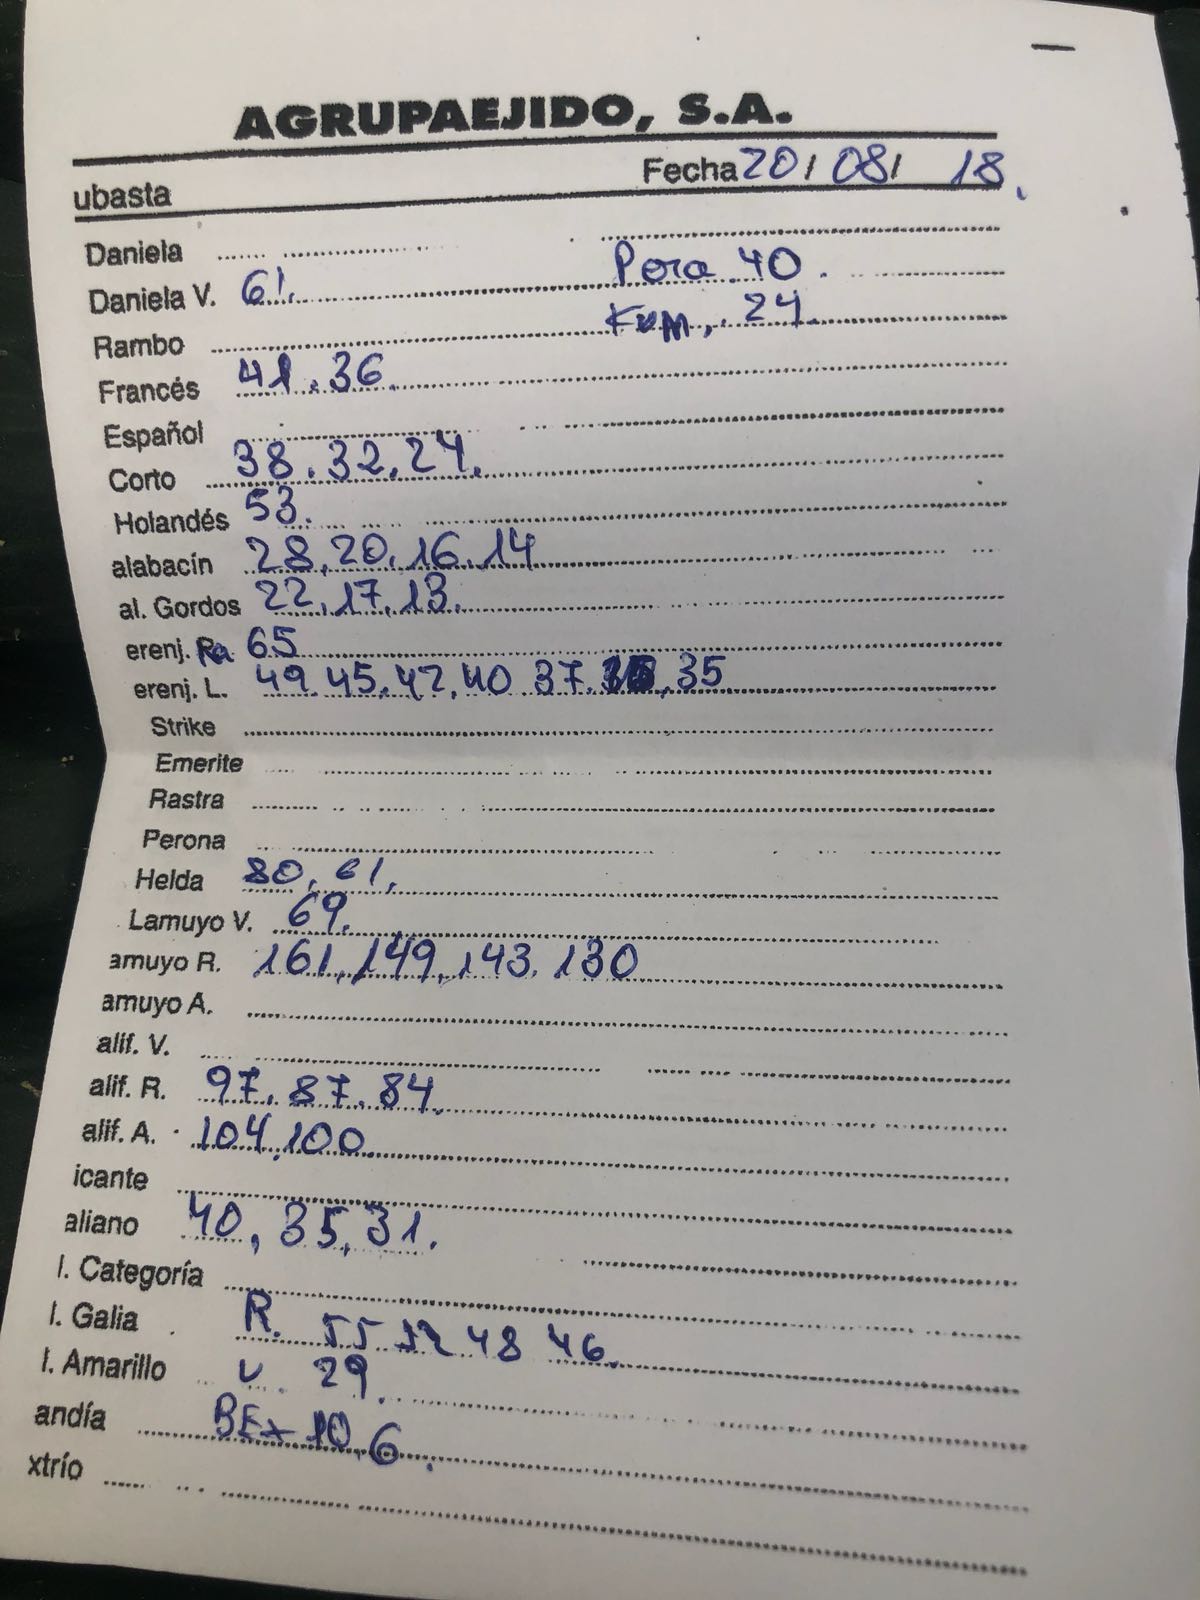 AGRUPAEJIDO, S.A.
ubasta Fecha 20/08/ 18.
Daniela
Daniela V. 61. Pera 40.
Rambo Kum, 24.
Francés 41. 36.
Español
Corto 38. 32. 24.
Holandés 53.
alabacín 28, 20, 16. 14
al. Gordos 22, 17, 13.
erenj. Ra 65
erenj. L. 49. 45. 42, 40 37. , 35
Strike
Emerite
Rastra
Perona
Helda 80, 61,
Lamuyo V. 69.
amuyo R. 161, 149, 143. 130
amuyo A.
alif. V.
alif. R. 97. 87. 84.
alif. A. 104. 100.
icante
aliano 40, 35, 31.
l. Categoría
l. Galia R. 55 52 48 46.
l. Amarillo V. 29.
andía 10, 6.
xtrío